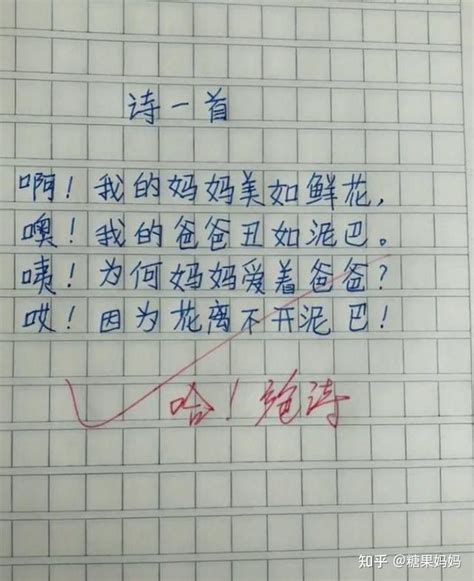 诗一首
啊！我的妈妈美如鲜花，
噢！我的爸爸丑如泥巴。
咦！为何妈妈爱着爸爸？
哎！因为花离不开泥巴！
哈！绝诗
知乎 @糖果妈妈